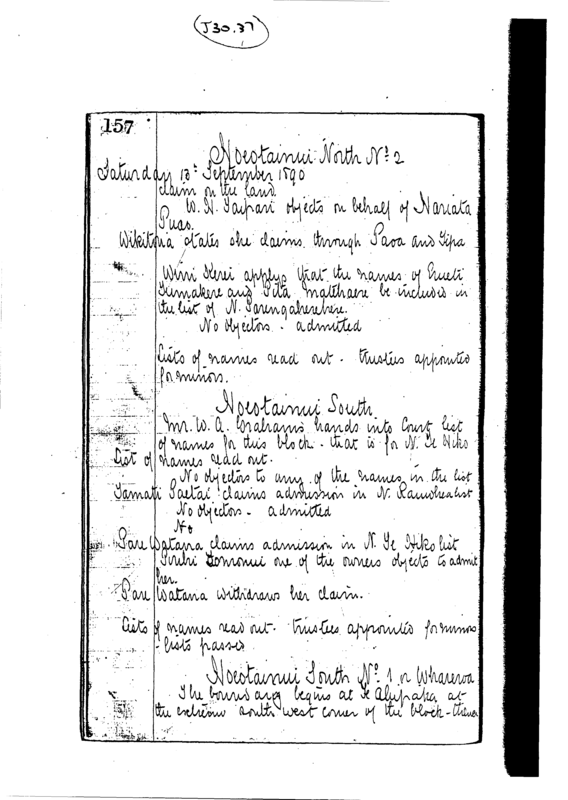 J30.37
157
Hoeotainui North No 2
Saturday 13th September 1890
claim on the land
W. H. Taipari objects on behalf of Nariata
Puao.
Wikitoria states she claims through Paoa and Tipa
Wini Kerei applys that the names of Erueti
and Pita Matehaere be included in
the list of N.
No objectors - admitted
Lists of names read out - trustees appointed
for minors.
Hoeotainui South
Mr. W. A. Graham hands into Court list
of names for this block - that is for N. Te Hiko
List of names read out.
No objectors to any of the names in the list
Tamati Paetai claims admission in N. list
No objectors - admitted
No
Pare Watana claims admission in N. Te Hiko list
one of the owners objects to admit
her.
Pare Watana withdraws her claim.
Lists of names read out - trustees appointed for minors
- lists passed
Hoeotainui South No 1 or Wharewa
The boundary begins at Te at
the extreme south west corner of the block - thence